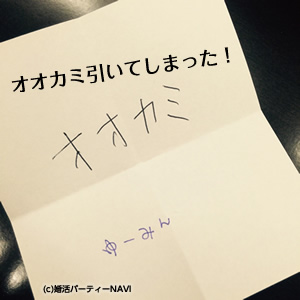 オオカミ引いてしまった！
オオカミ
ゆーみん
(c)婚活パーティーNAVI